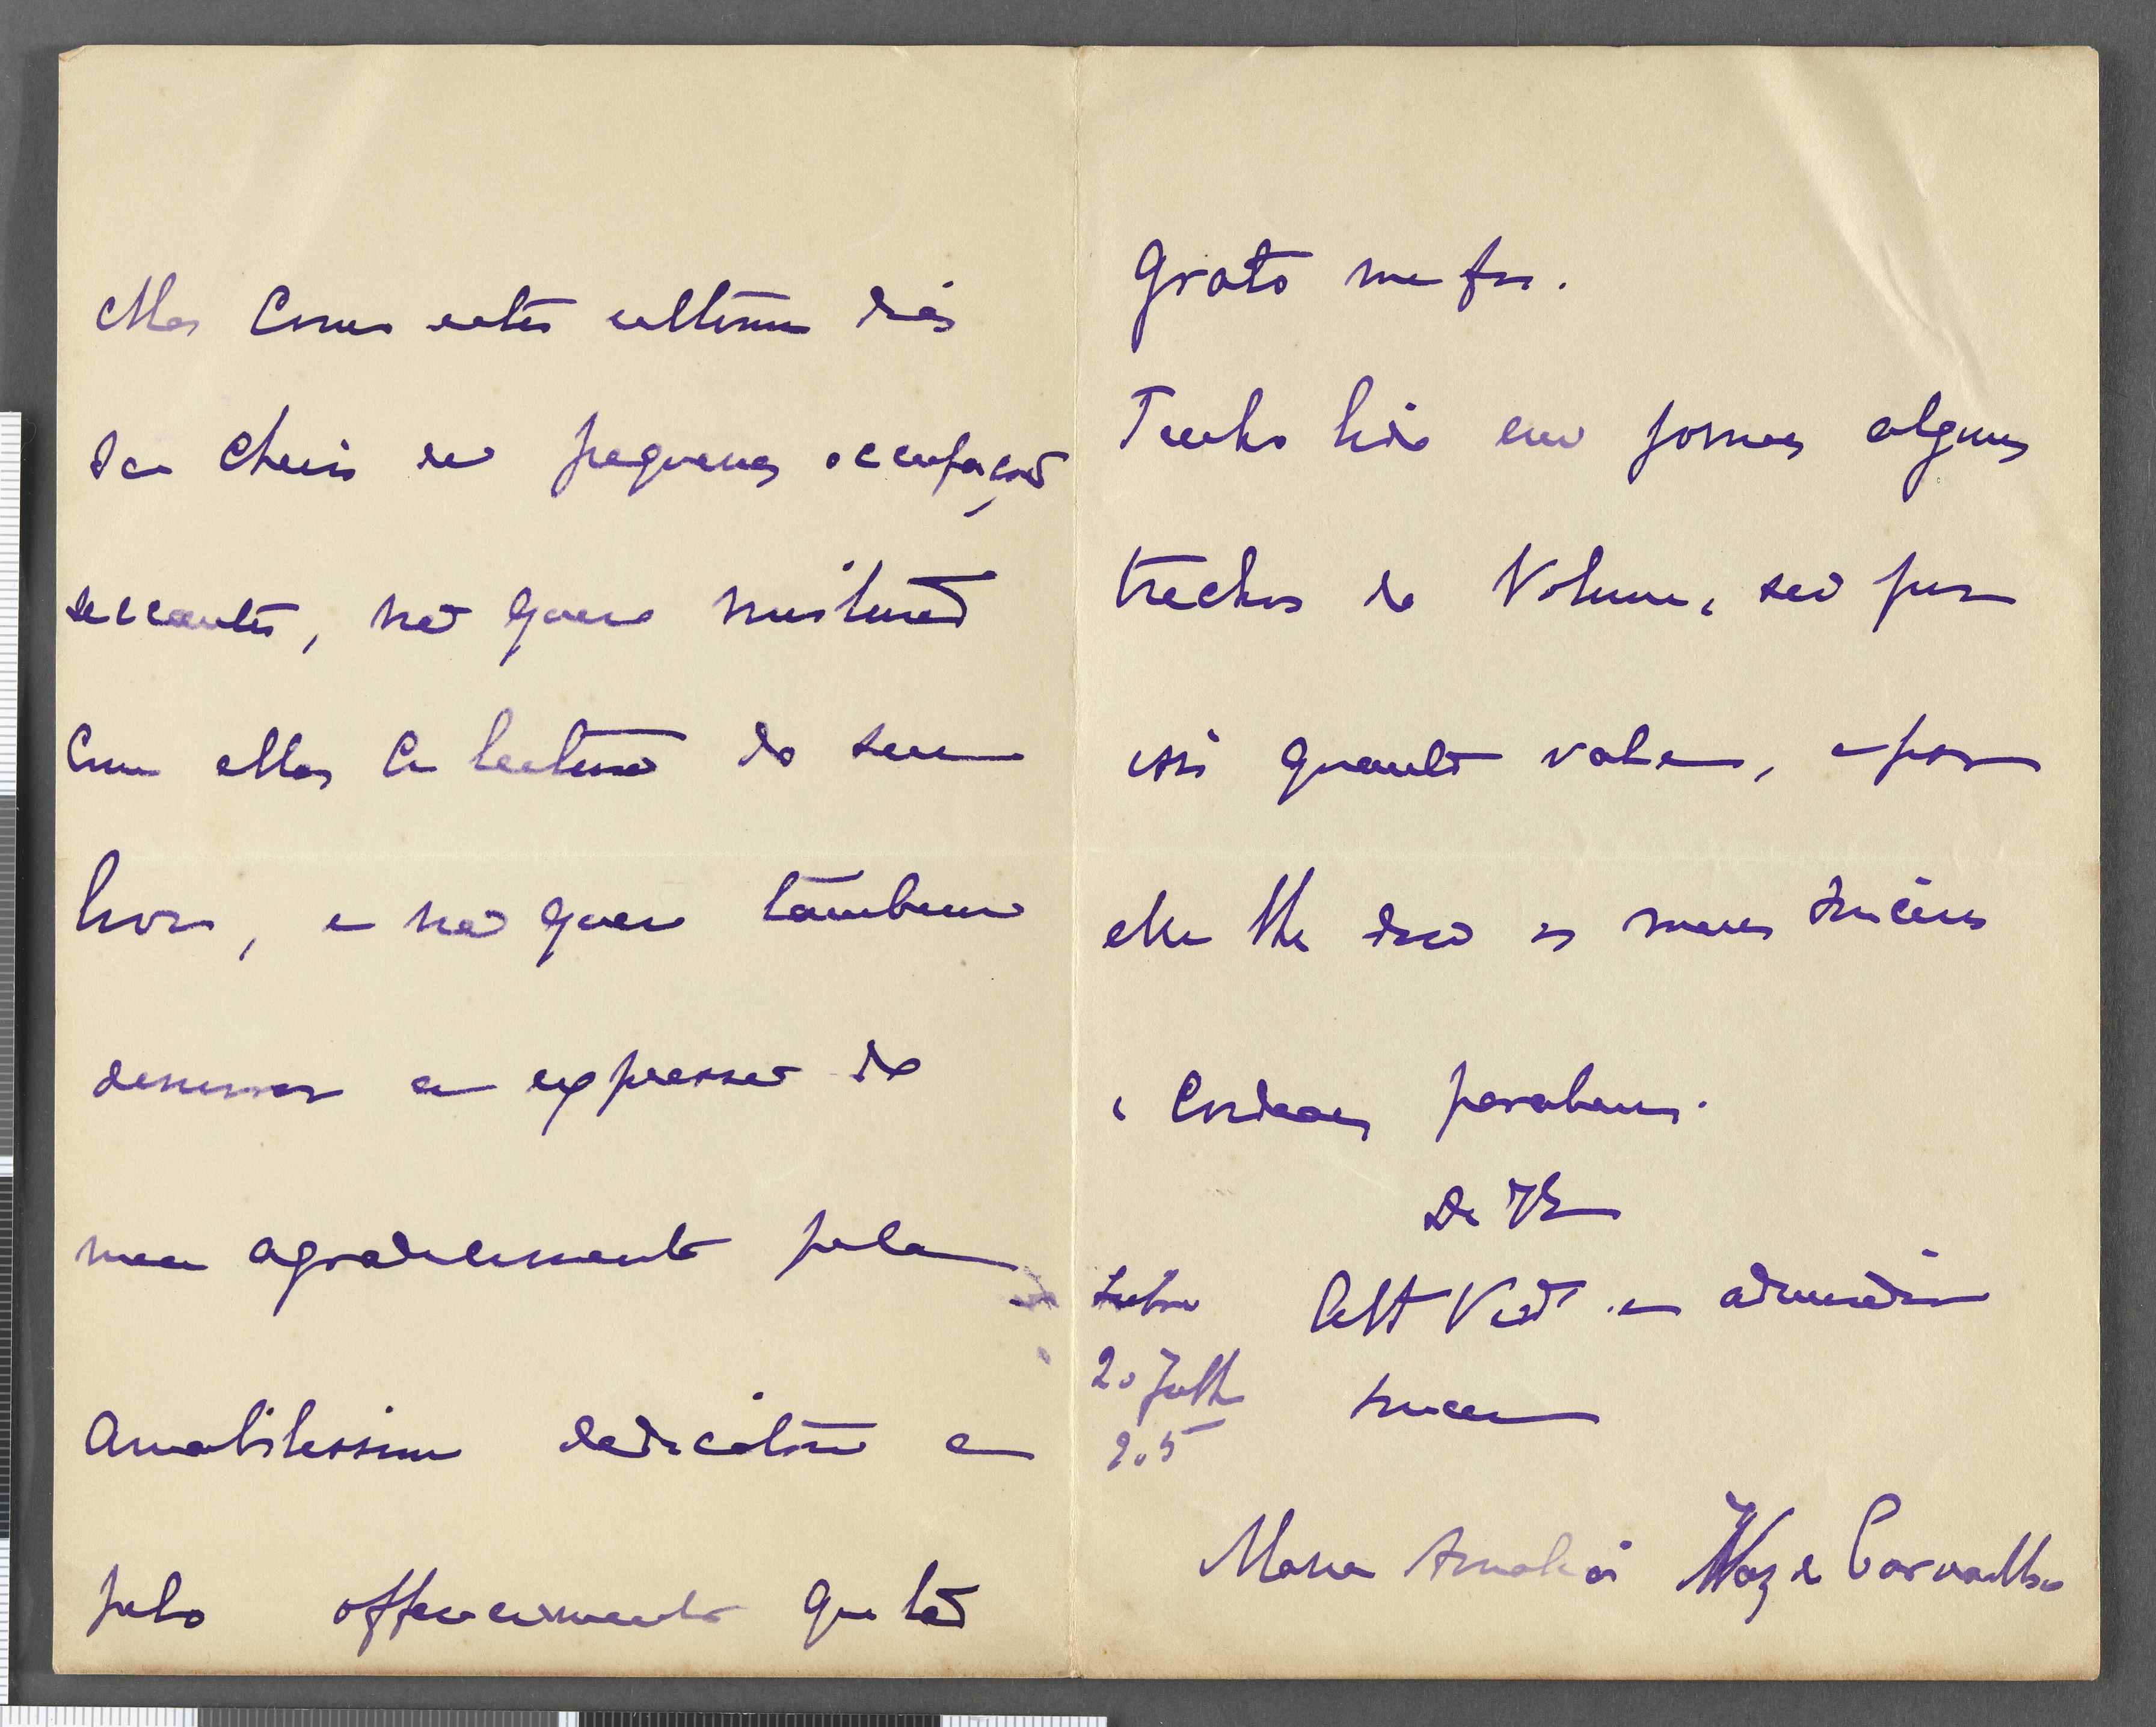 Mas como estes ultimos dias
são cheios de pequenas occupações
seccantes, não quero misturar
com ellas a leitura do seu
livro, e não quero tambem
demorar a expressão do
meu agradecimento pela
amabilissima dedicatoria e
pelo offerecimento que tão
grato me foi.
Tenho lido em jornaes alguns
trechos do volume, sei por
isso quanto valem, e por
elle lhe dou os meus sinceros
e cordeaes parabens.
De VE
Att Vedª e admiradora
sincera
Lisboa
20 Julho
905
Maria Amalia Vaz de Carvalho